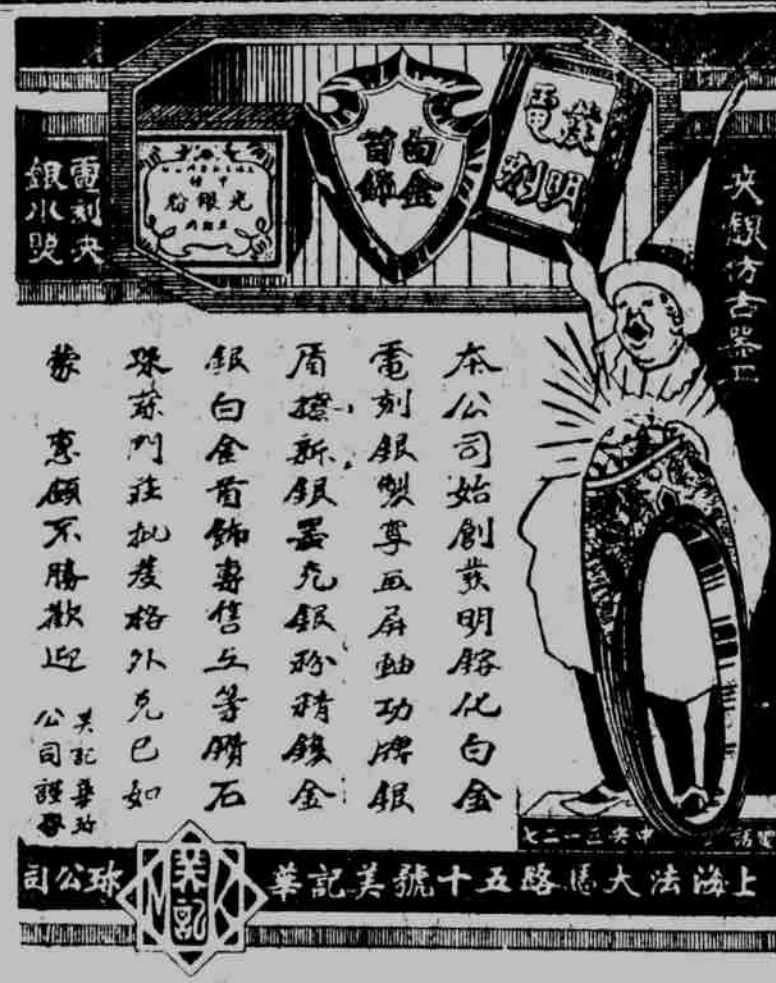 發明
電刻
白金
首飾
光銀粉
仿古器皿
電刻
本公司始創發明鎔化白金
電刻銀製屏軸功牌銀
盾擦新銀器光銀粉精鑲金
銀白金首飾專售上等鑽石
珠門莊批發格外克己如
蒙 惠顧不勝歡迎
美記華珍
公司謹啓
電話 中央三一二七
上海法大馬路五十號美記華珍公司
美記
M K